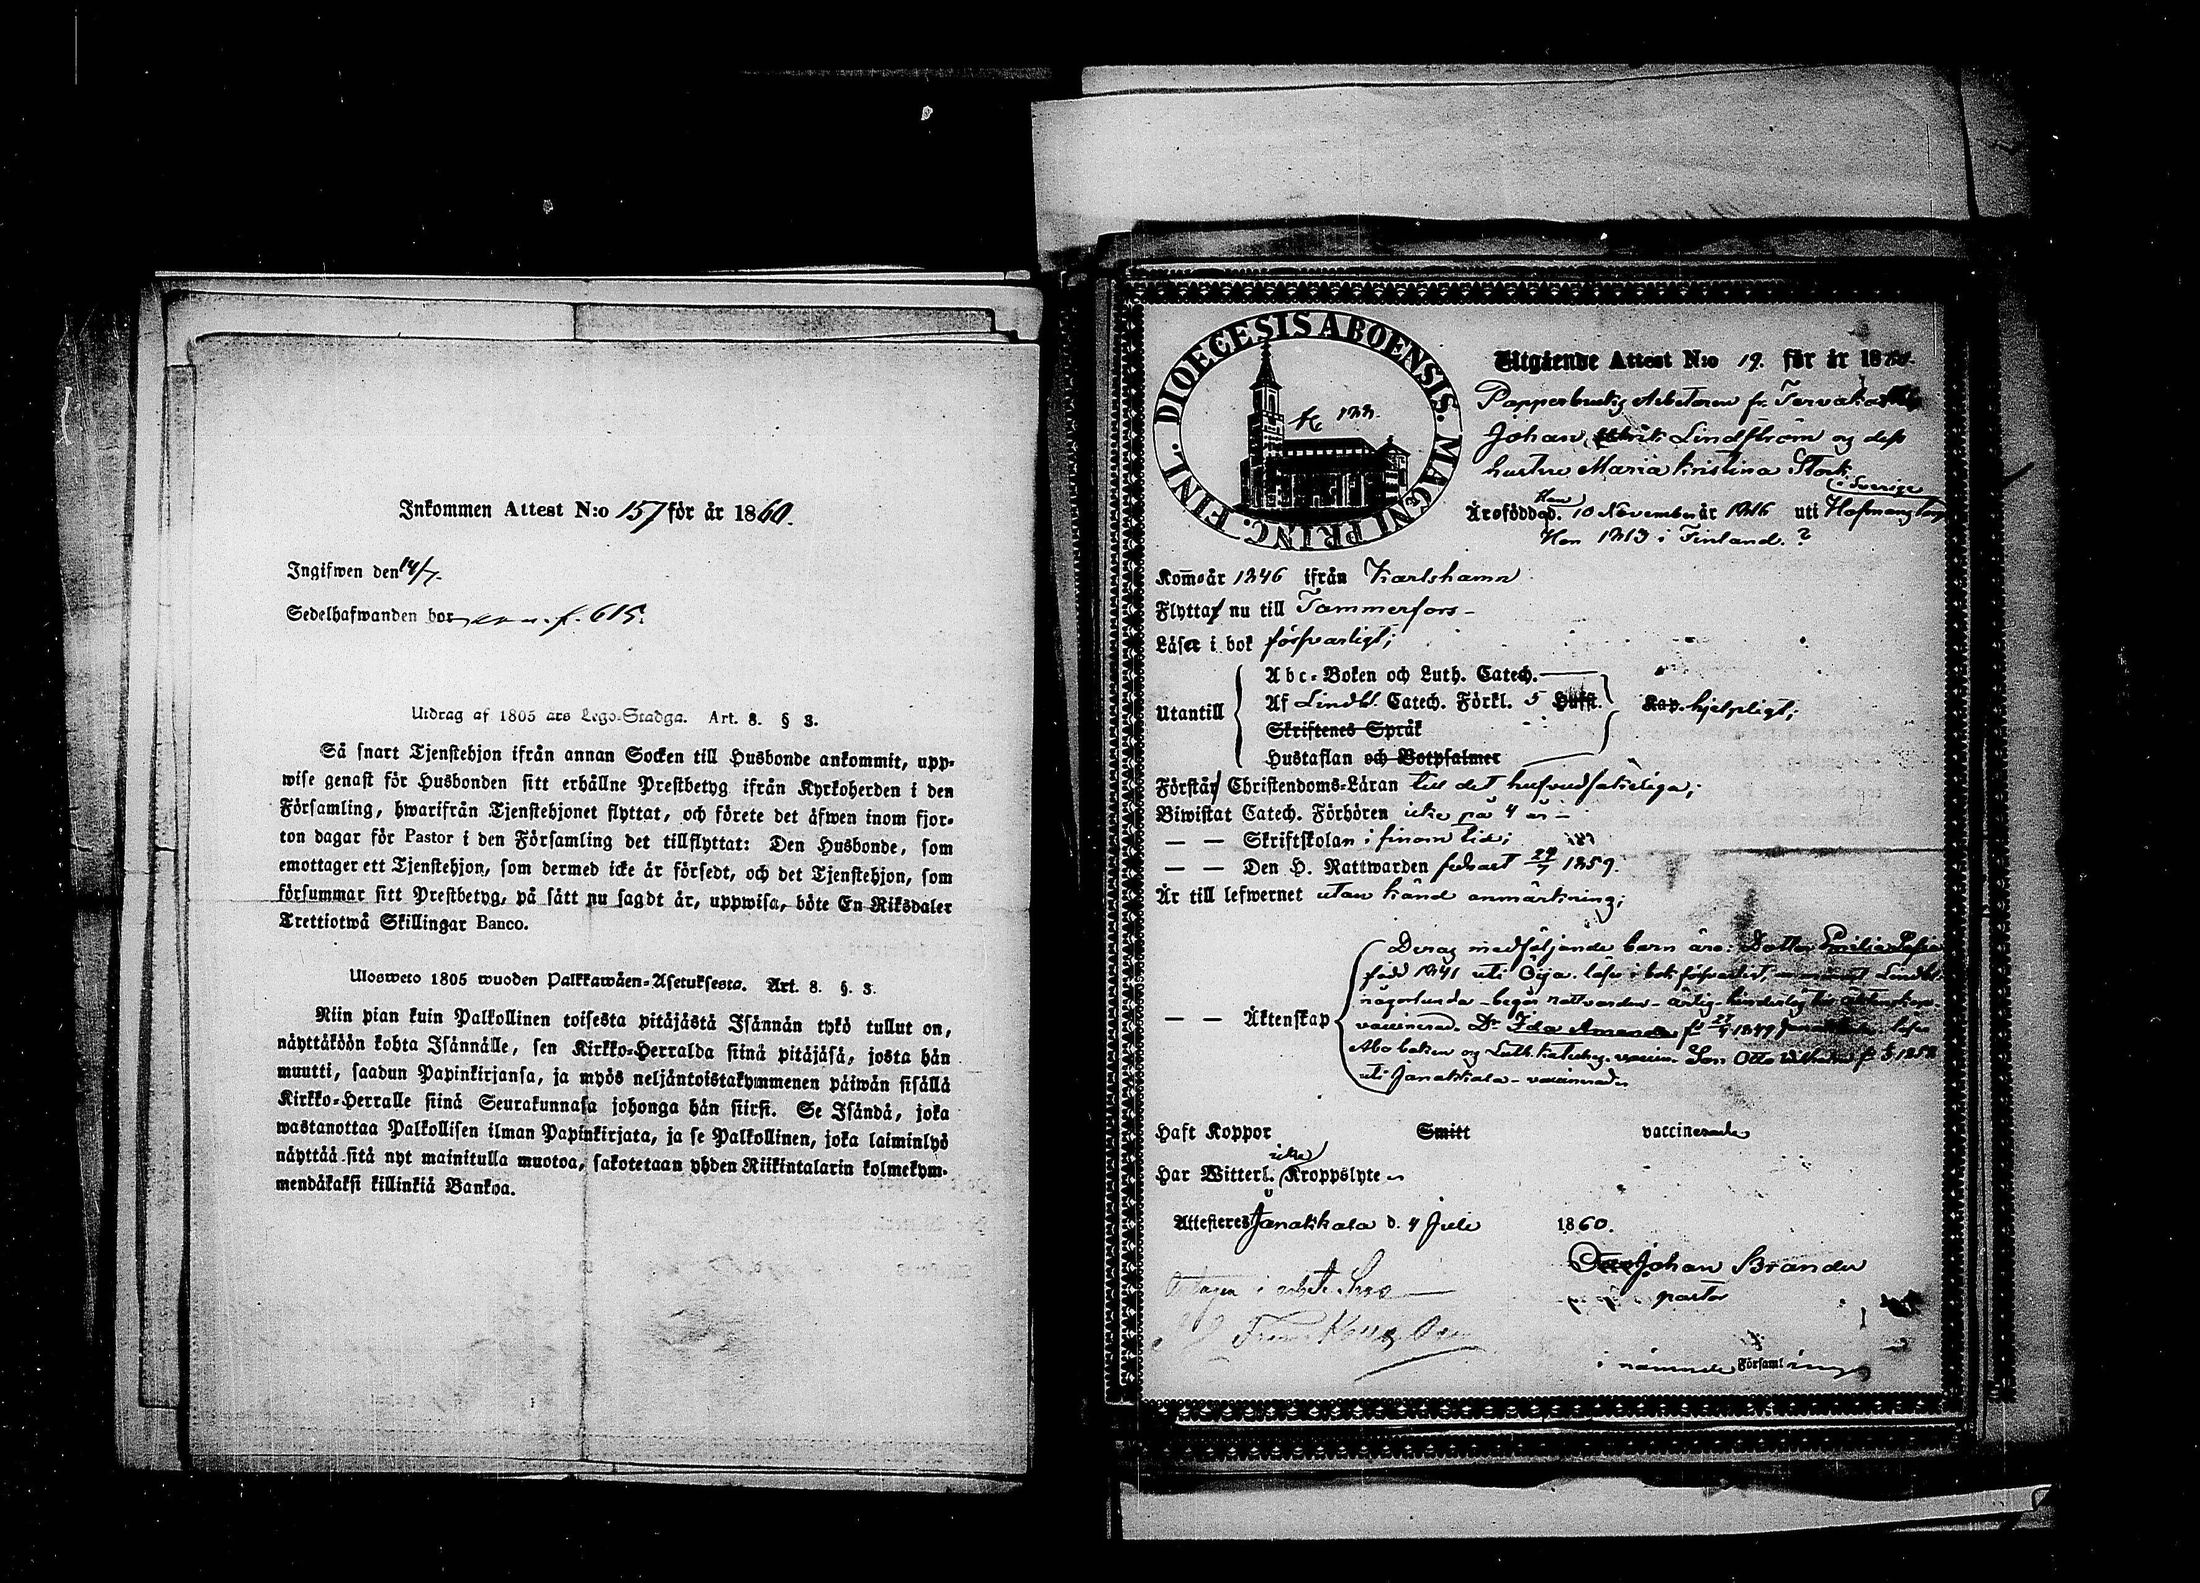 Inkommen Attest N:o 157 för år 1860.
Ingifwen den 14/7.
Sedelhafwanden bor f. 615.
Utdrag af 1805 års Lego-Stadga. Art. 8. § 3.
Så snart Tjenstehjon ifrån annan Socken till Husbonde ankommit, upp-
wise genast för Husbonden sitt erhållne Prestbetyg ifrån Kyrkoherden i den
Församling, hwarifrån Tjenstehjonet flyttat, och förete det äfwen inom fjor-
ton dagar för Pastor i den Församling det tillflyttat: Den Husbonde, som
emottager ett Tjenstehjon, som dermed icke är försedt, och det Tjenstehjon, som
försummar sitt Prestbetyg, på sätt nu sagdt är, uppwisa, böte En Riksdaler
Trettiotwå Skillingar Banco.
Ulosweto 1805 wuoden Palkkawäen-Asetuksesta. Art. 8. §. 3.
Niin pian kuin Palkollinen toisesta pitäjästä Isännän tykö tullut on,
näyttäköön kohta Isännälle, sen Kirkko-Herralda siinä pitäjäsä, josta hän
muutti, saadun Papinkirjansa, ja myös neljäntoistakymmenen päiwän sisällä
Kirkko-Herralle siinä Seurakunnasa johonga hän siirsi. Se Isändä, joka
wastanottaa Palkollisen ilman Papinkirjata, ja se Palkollinen, joka laiminlyö
näyttää sitä nyt mainitulla muotoa, sakotetaan yhden Riikintalarin kolmekym-
mendäkaksi killinkiä Bankoa.
FINL. DIOECESIS ABOENSIS. MAGNI PRINC.
Utgående Attest N:o 19. för år 1860.
Pappersbruks Arbetaren fr. Tervakoski
Johan Lindström og dess
hustru Maria Kristina Stork
i Sverige
Han
Äro född d. 10 November år 1816 uti Hofmanstorp
Hon 1813 i Finland. ?
Kom år 1846 ifrån Karlshamn
Flytta nu till Tammerfors -
Läser i bok försvarligt;
Utantill
Abc-Boken och Luth. Catech.
Af Lindbl. Catech. Förkl. 5 Hufst. Kap. hjelpligt;
Skriftenes Språk
Hustaflan och Botpsalmer
Förstår Christendoms-Läran till det hufvudsakeliga;
Biwistat Catech. Förhören icke på 4 år -
— — Skriftskolan i sinom tid;
— — Den H. Nattwarden sednast 24/7 1859.
Är till lefwernet utan känd anmärkning;
— — Äktenskap
Deras medföljande barn äro: Dotter Emilia Sofia
född 1841 uti Öija. läser i bok försvarligt, Lindbl.
någorlunda - begår nattvarden - ärlig -
vaccinerad. Dr Ida Amanda 1849 läser
Abc boken og Luth. Katech. vaccin. Son Otto Wilhelm 1858
uti Janakkala - vaccinerade
Haft Koppor Smitt vaccinerade
icke
Har Witterl. Kroppslyte
Attesteres Janakkala d. 4 Juli 1860.
Johan Brander
pastor
i nämnde Församling